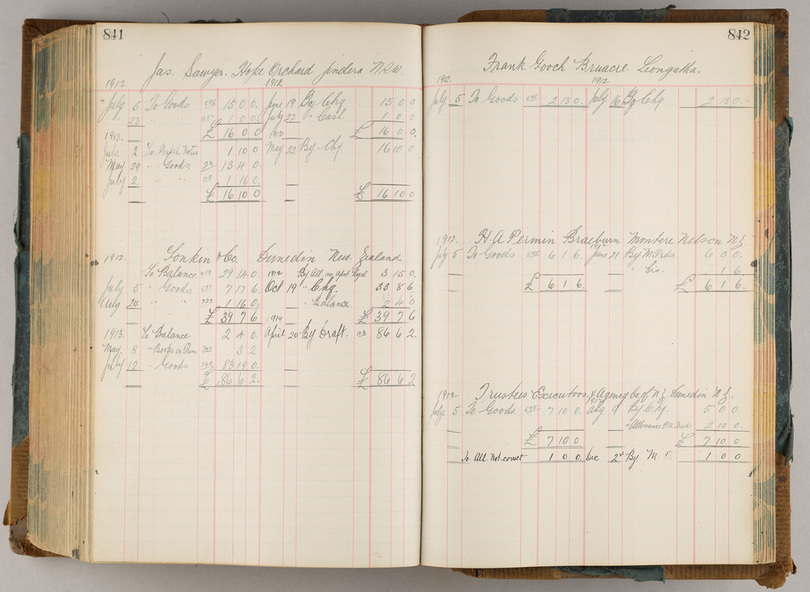 841
Jas. Sawyer. Hope Orchard Jindera N.S.W.
1912 1912
July 5 To Goods 15 0 0 June 19 By Chq 15 0 0
23 1 0 0 July 22 " Cash 1 0 0
£ 16 0 0 £ 16 0 0
1913
2 To Notes 1 10 0 May 22 By Chq 16 10 0
May 29 " Goods 13 4 0
July 2 " " 1 16 0
£ 16 10 0 £ 16 10 0
1912 Tonkin & Co. Dunedin New Zealand
To Balance 29 14 0 1912 By All. 3 15 0
July 5 " Goods 7 17 6 Oct 19 " Chq. 33 8 6
Aug 20 " " 1 16 0 " Balance 2 4 0
£ 39 7 6 1914 £ 39 7 6
1913 To Balance 2 4 0 April 20 By Draft 86 6 2
May 8 3 2
July 12 " Goods 83 19 0
£ 86 6 2 £ 86 6 2
842
Frank Gooch Bruacre Leongatha.
1912 1912
July 5 To Goods 2 13 0 July 16 By Chq 2 13 0
1912 H. A. Permin Braeburn Moutere Nelson N.Z.
July 5 To Goods 6 1 6 June 21 By 6 0 0
" Dis. 1 6
£ 6 1 6 £ 6 1 6
1912 Trustees Executors & Agency Co. of N.Z. Dunedin N.Z.
July 5 To Goods 7 10 0 Aug 9 By Chq. 5 0 0
" Allowance 2 10 0
£ 7 10 0 £ 7 10 0
To All. Not correct 1 0 0 Dec 2nd By 1 0 0